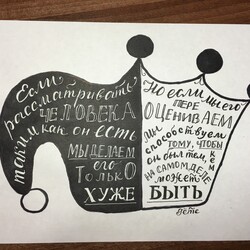 Если
рассматривать
ЧЕЛОВЕКА
таким как он есть
МЫ ДЕЛАЕМ
его
ТОЛЬКО
ХУЖЕ
Но если мы его
ПЕРЕ
ОЦЕНИВАЕМ
МЫ
способствуем
ТОМУ, ЧТОБЫ
он был тем,
КЕМ
НА САМОМ ДЕЛЕ
может
БЫТЬ
Гете